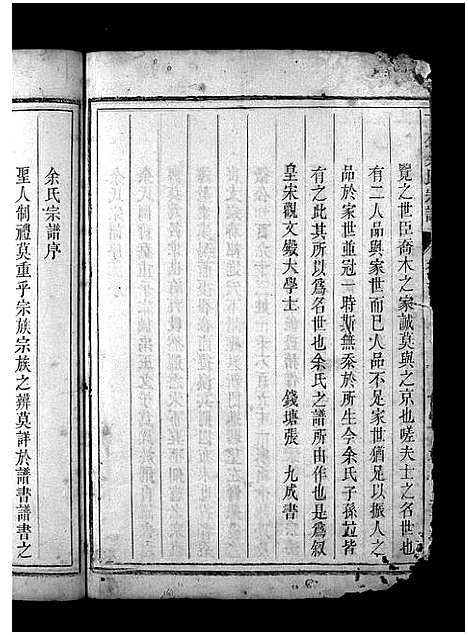 覽之世臣喬木之家誠莫與之京也嗟夫士之名世也
有二人品與家世而已人品不足家世猶足以振人之
品於家世並冠一時斯無忝於所生今余氏子孫竝皆
有之此其所以爲名世也余氏之譜所由作也是爲叙
皇宋觀文殿大學士　錢塘張　九成書
余氏宗譜序
聖人制禮莫重乎宗族宗族之辨莫詳於譜書譜書之